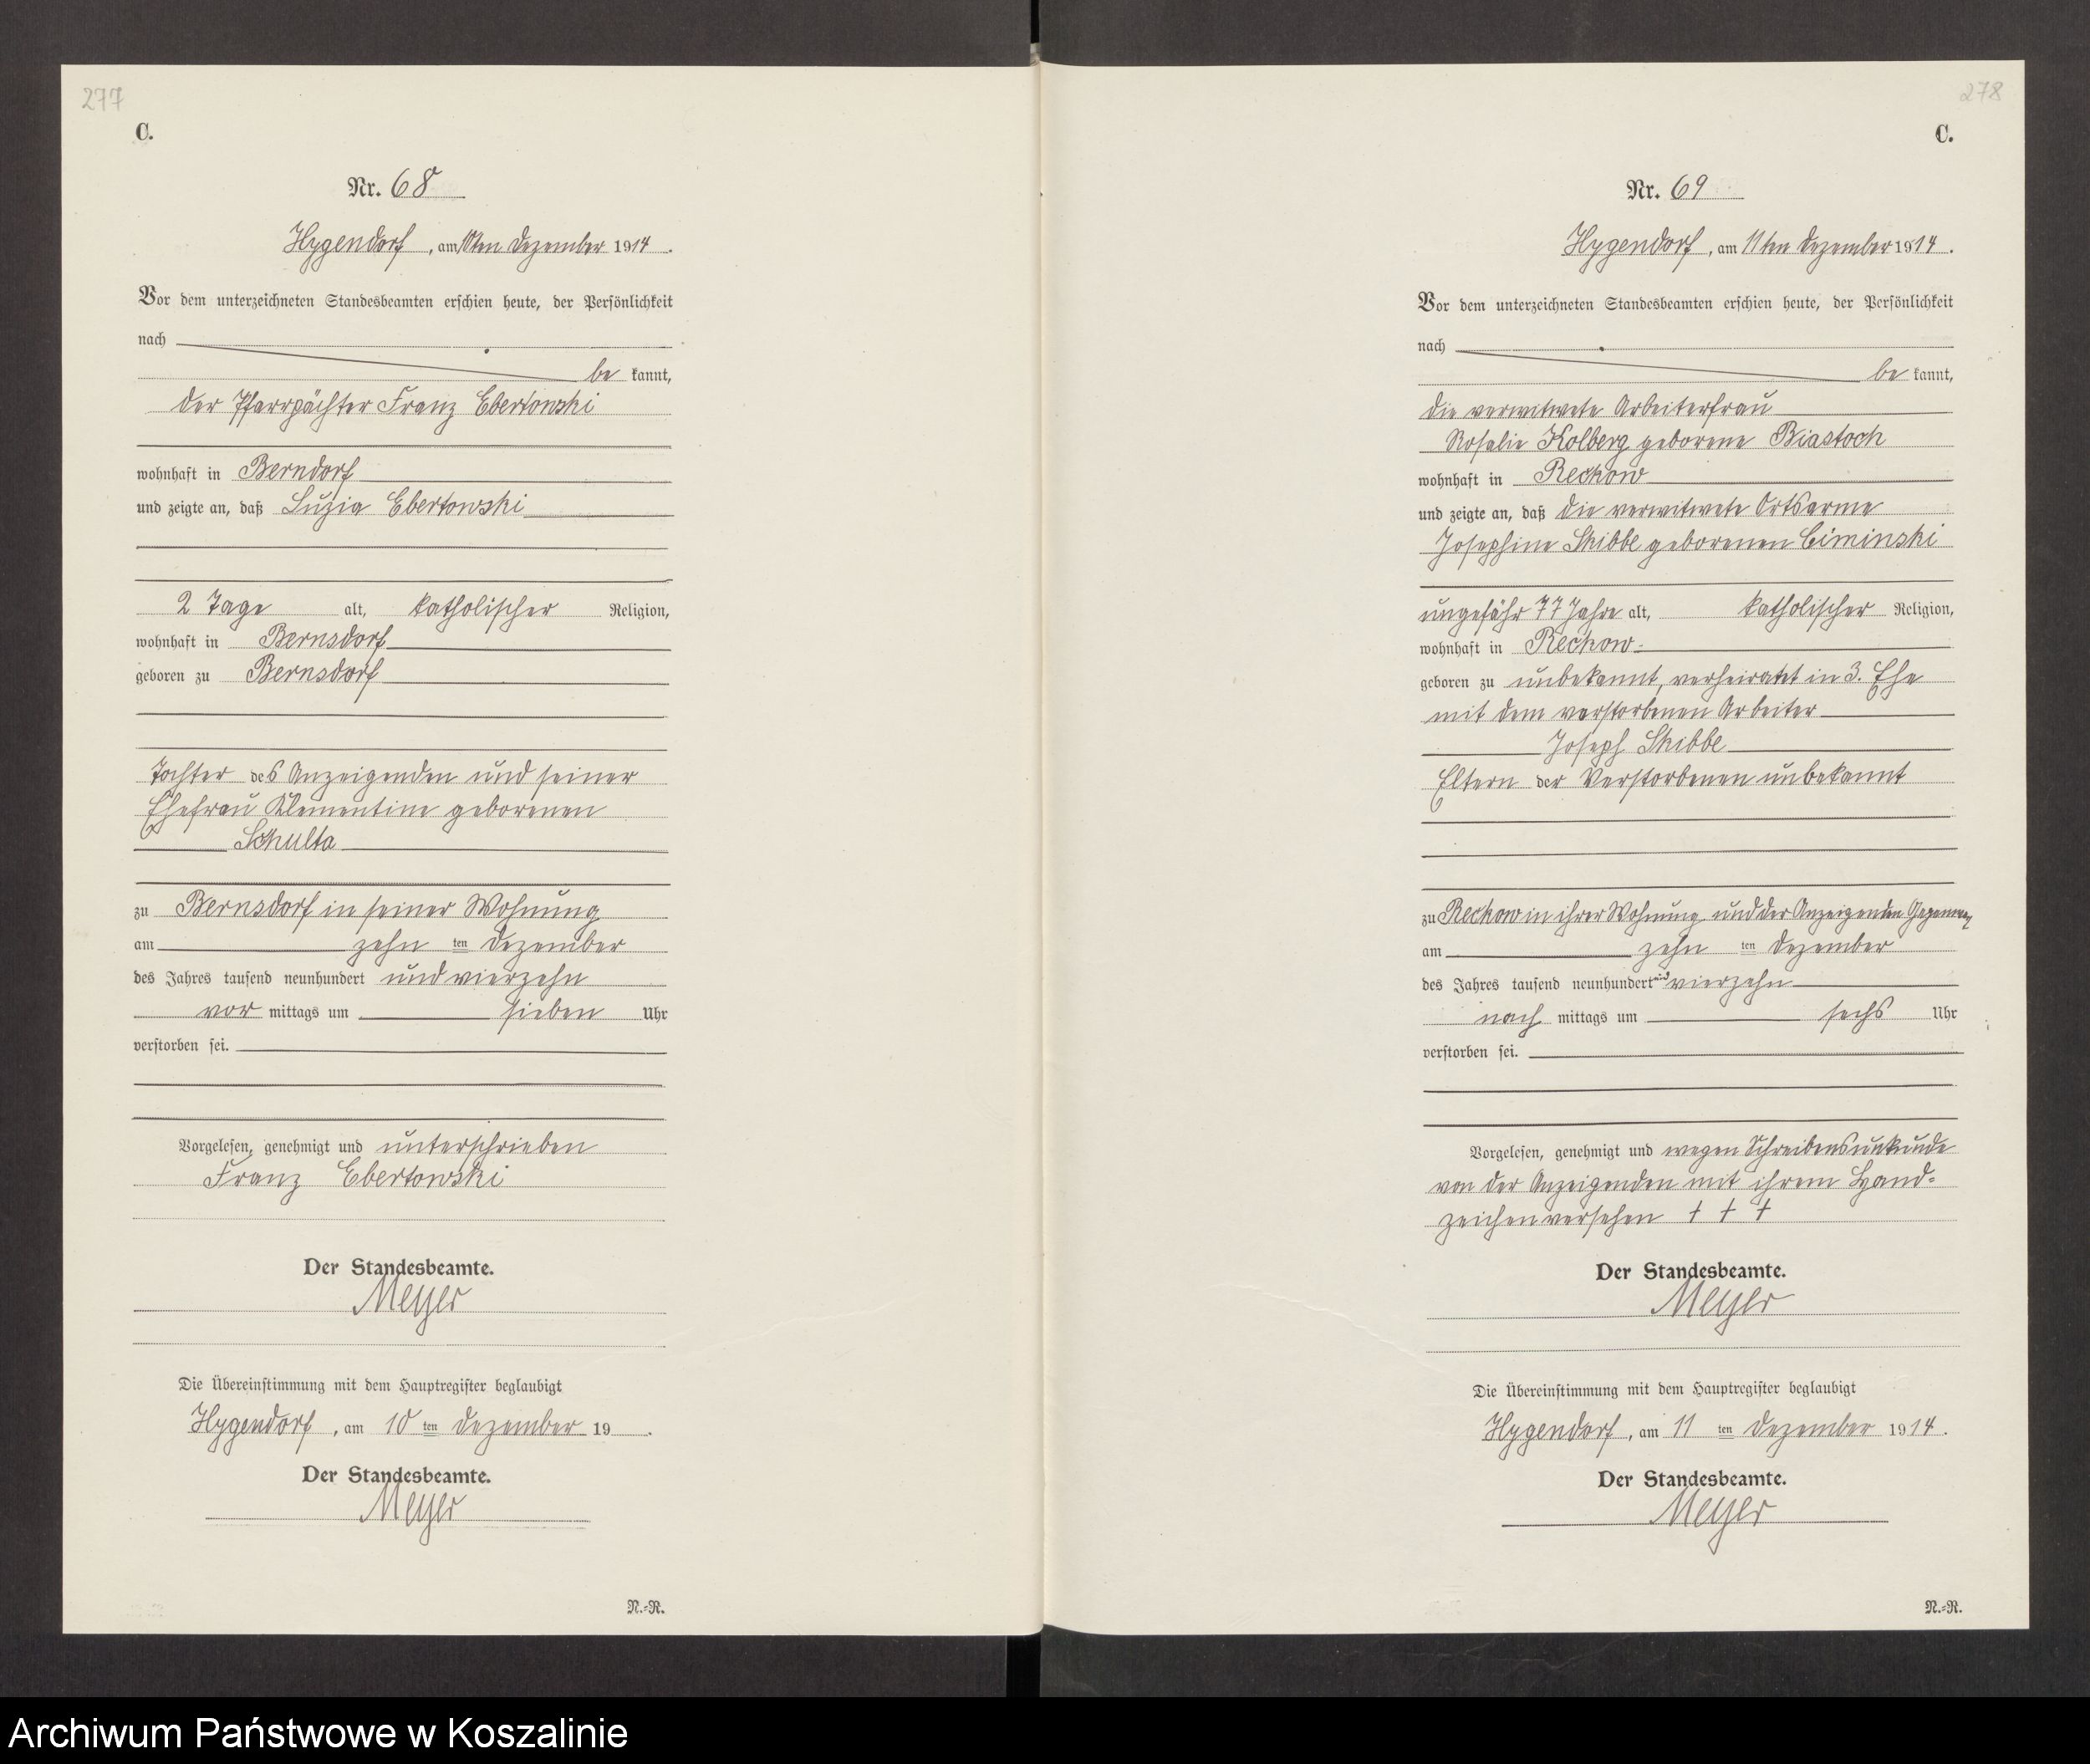 277
C.
Nr. 68
Hygendorf, am 10ten Dezember 1914.
Vor dem unterzeichneten Standesbeamten erschien heute, der Persönlichkeit
nach
be kannt,
der Pfarrpächter Franz Ebertowski
wohnhaft in Berndorf
und zeigte an, daß Luzia Ebertowski
2 Tage alt, katholischer Religion,
wohnhaft in Bernsdorf
geboren zu Bernsdorf
Tochter des Anzeigenden und seiner
Ehefrau Klementine geborenen
Schulta
zu Bernsdorf in seiner Wohnung
am zehn ten Dezember
des Jahres tausend neunhundert und vierzehn
vor mittags um sieben Uhr
verstorben sei.
Vorgelesen, genehmigt und unterschrieben
Franz Ebertowski
Der Standesbeamte.
Meyer
Die Übereinstimmung mit dem Hauptregister beglaubigt
Hygendorf, am 10 ten Dezember 19 .
Der Standesbeamte.
Meyer
N.-R.
278
C.
Nr. 69
Hygendorf, am 11ten Dezember 1914.
Vor dem unterzeichneten Standesbeamten erschien heute, der Persönlichkeit
nach
be kannt,
die verwitwete Arbeiterfrau
Rosalie Kolberg geborene Biastoch
wohnhaft in Reckow
und zeigte an, daß die verwitwete Ortsarme
Josephine Skibbe geborenen Ciminski
ungefähr 77 Jahre alt, katholischer Religion,
wohnhaft in Reckow
geboren zu unbekannt, verheiratet in 3. Ehe
mit dem verstorbenen Arbeiter
Joseph Skibbe
Eltern der Verstorbenen unbekannt
zu Reckow in ihrer Wohnung und der Anzeigenden Gegenwart
am zehn ten Dezember
des Jahres tausend neunhundert und vierzehn
nach mittags um sechs Uhr
verstorben sei.
Vorgelesen, genehmigt und wegen Schreibensunkunde
von der Anzeigenden mit ihrem Hand-
zeichen versehen + + +
Der Standesbeamte.
Meyer
Die Übereinstimmung mit dem Hauptregister beglaubigt
Hygendorf, am 11 ten Dezember 1914.
Der Standesbeamte.
Meyer
N.-R.
Archiwum Państwowe w Koszalinie